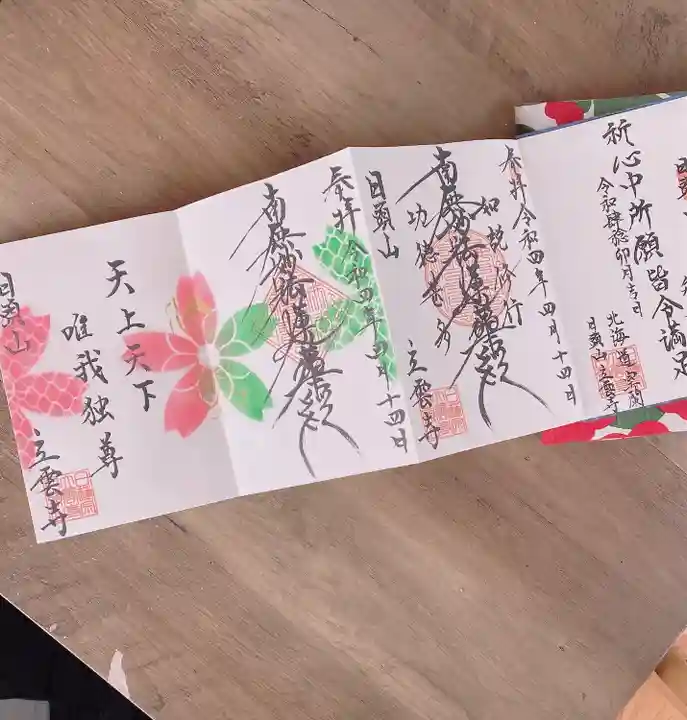 祈心中所願皆令満足
令和肆稔卯月吉日
北海道室蘭
日頭山立雲寺
奉拝令和四年四月十四日
如説修行
南無妙法蓮華経
功徳甚多
日頭山
立雲寺
奉拝令和四年四月十四日
南無妙法蓮華経
天上天下
唯我独尊
日頭山
立雲寺